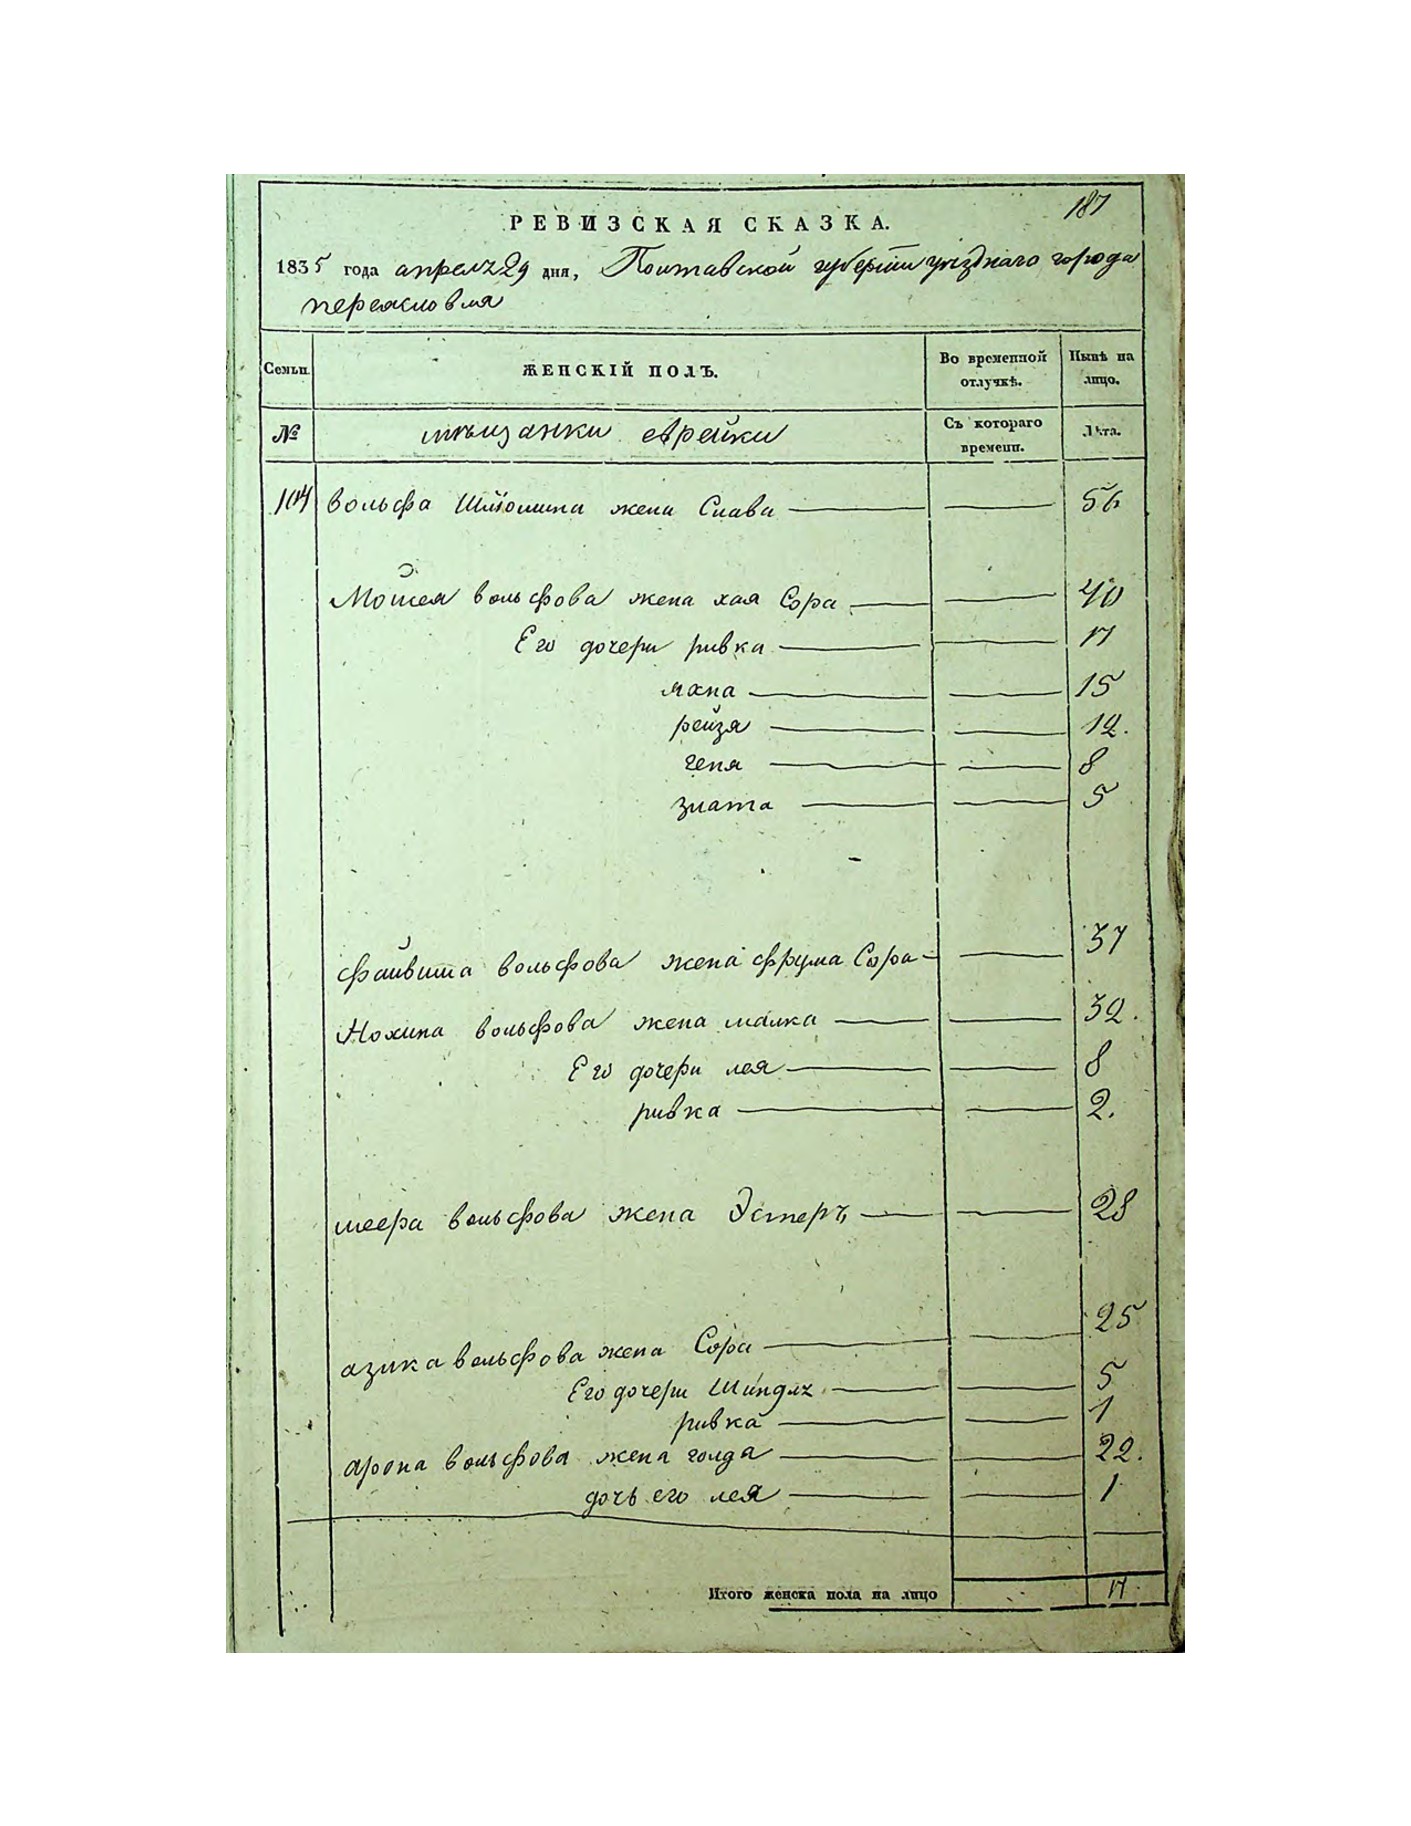 187
РЕВИЗСКАЯ СКАЗКА.
1835 года апреля 29 дня, Полтавской губернии уезднаго города
переяславля
Семьи. ЖЕНСКІЙ ПОЛЪ. Во временной отлучкѣ. Нынѣ на лицо.
№ мещанки еврейки Съ котораго времени. Лѣта.
104 вольфа Шлиомина жена Слава 56
Мошея вольфова жена хая Сора 40
Его дочери ривка 17
махна 15
рейзя 12.
геня 8
злата 5
файвиша вольфова жена фрума Сора 37
Нохима вольфова жена малка 32.
Его дочери лея 8
ривка 2.
меера вольфова жена Эстеръ 28
азика вольфова жена Сора 25
Его дочери Шиндля 5
ривка 1
арона вольфова жена голда 22.
дочь его лея 1
Итого женска пола на лицо 17